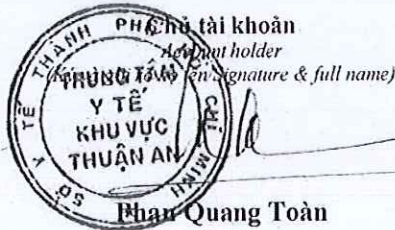 Chủ tài khoản
Account holder
Signature & full name)
SỞ Y TẾ THÀNH PHỐ
CHÍ MINH
TRUNG TÂM
Y TẾ
KHU VỰC
THUẬN AN
Phan Quang Toàn